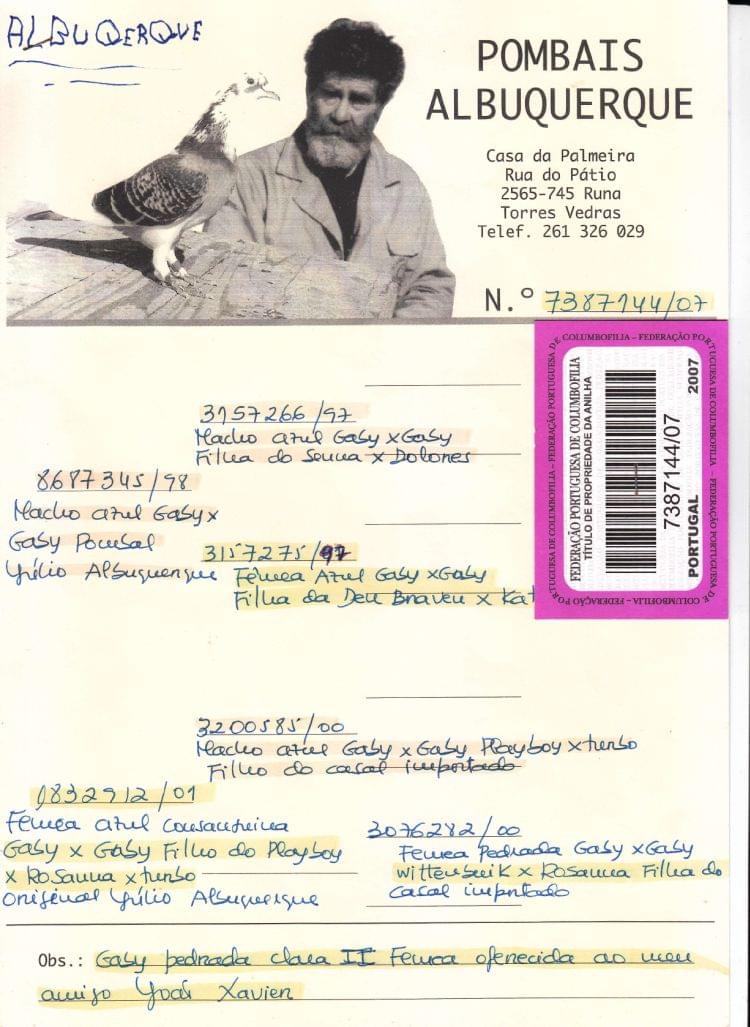 ALBUQUERQUE
POMBAIS
ALBUQUERQUE
Casa da Palmeira
Rua do Pátio
2565-745 Runa
Torres Vedras
Telef. 261 326 029
N.º 7387144/07
FEDERAÇÃO PORTUGUESA DE COLUMBOFILIA
TÍTULO DE PROPRIEDADE DA ANILHA
7387144/07
PORTUGAL 2007
3157266/97
Macho azul Gaby x Gaby
Filha do Senna x Dolores
8687345/98
Macho azul Gaby x
Gaby Pombal
Yúlio Albuquerque
3157275/97
Fêmea Azul Gaby x Gaby
Filha da Den Braven x Kat
3200585/00
Macho azul Gaby x Gaby Playboy x turbo
Filho do casal importado
0832912/01
Fêmea azul consanguinea
Gaby x Gaby Filho do Playboy
x Rosanna x turbo
original Yúlio Albuquerque
3076282/00
Femea Pedrada Gaby x Gaby
Wittenbuik x Rosanna Filha do
casal importado
Obs.: Gaby pedrada clara II Femea oferecida ao meu
amigo Yoão Xavier